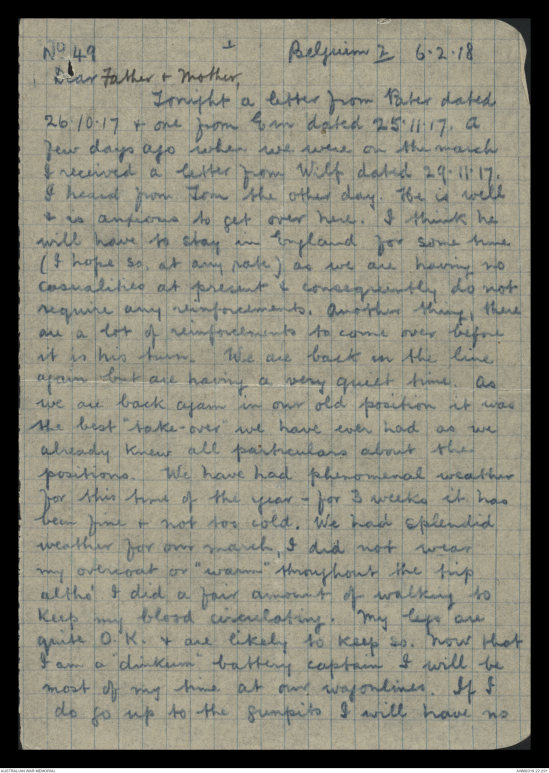 No 49 1 Belgium 7 6.2.18
Dear Father & Mother,
Tonight a letter from Pater dated
26.10.17 & one from Em dated 25.11.17. A
few days ago when we were on the march
I received a letter from Wilf dated 29.11.17.
I heard from Tom the other day. He is well
& is anxious to get over here. I think he
will have to stay in England for some time
(I hope so, at any rate) as we are having no
casualities at present & consequently do not
require any reinforcements. Another thing, there
are a lot of reinforcements to come over before
it is his turn. We are back in the line
again but are having a very quiet time. As
we are back again in our old position it was
the best "take-over" we have ever had as we
already knew all particulars about the
positions. We have had phenomenal weather
for this time of the year - for 3 weeks it has
been fine & not too cold. We had splendid
weather for our march, I did not wear
my overcoat or "warm" throughout the trip
altho' I did a fair amount of walking to
keep my blood circulating. My legs are
quite O.K. & are likely to keep so. Now that
I am a "dinkum" battery captain I will be
most of my time at our wagonlines. If I
do go up to the gunpits I will have no
AUSTRALIAN WAR MEMORIAL